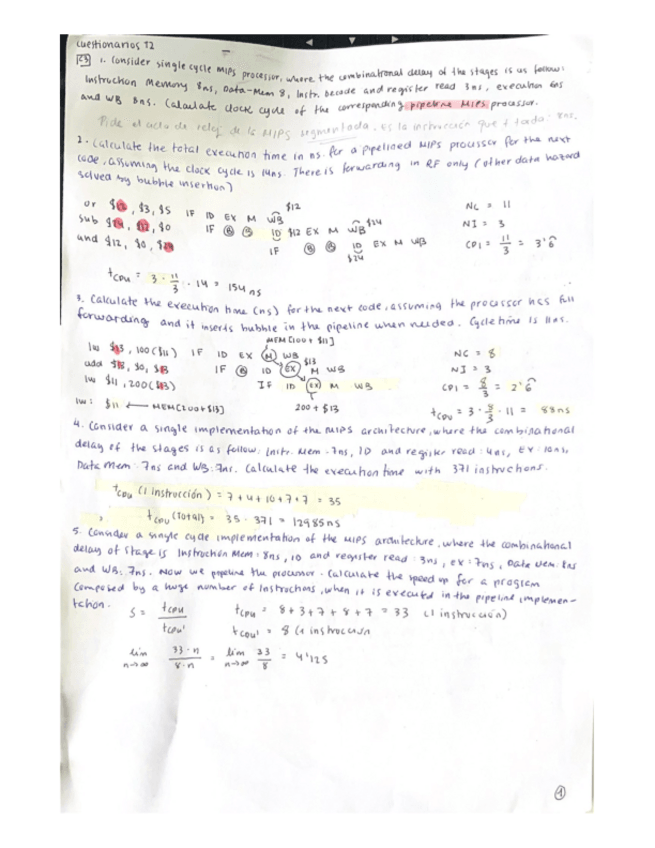 Cuestionarios T2
C3 1. Consider single cycle MIPS processor, where the combinational delay of the stages is as follow:
Instruction Memory 8ns, Data-Mem 8, Instr. Decode and register read 3ns, execution 6ns
and WB 8ns. Calculate clock cycle of the corresponding pipeline MIPS processor.
Pide el ciclo de reloj de la MIPS segmentada. Es la instrucción que + tarda. 8ns.
2. Calculate the total execution time in ns. for a pipelined MIPS processor for the next
code, assuming the clock cycle is 14ns. There is forwarding in RF only (other data hazard
solved by bubble insertion)
or $12, $3, $5 IF ID EX M WB $12 NC = 11
sub $24, $12, $0 IF B B ID $12 EX M WB $24 NI = 3
and $12, $0, $24 IF B B ID EX M WB CPI = 11/3 = 3'6
$24
tCPU = 3 · 11/3 · 14 = 154 ns
3. Calculate the execution time (ns) for the next code, assuming the processor has full
forwarding and it inserts bubble in the pipeline when needed. Cycle time is 11ns.
MEM[100+$11]
lw $13, 100($11) IF ID EX M WB $13 NC = 8
add $13, $0, $13 IF B ID EX M WB NI = 3
lw $11, 200($13) IF ID EX M WB CPI = 8/3 = 2'6
lw: $11 ← MEM[200+$13] 200 + $13 tCPU = 3 · 8/3 · 11 = 88ns
4. Consider a single implementation of the MIPS architecture, where the combinational
delay of the stages is as follow: Instr. Mem. 7ns, ID and register read: 4ns, EX: 10ns,
Data Mem: 7ns and WB: 7ns. Calculate the execution time with 371 instructions.
tCPU (1 instrucción) = 7+4+10+7+7 = 35
tCPU (total) = 35 · 371 = 12985ns
5. Consider a single cycle implementation of the MIPS architecture, where the combinational
delay of stage is Instruction Mem: 8ns, ID and register read: 3ns, EX: 7ns, Data Mem: 8ns
and WB: 7ns. Now we pipeline the processor. Calculate the speed up for a program
composed by a huge number of instructions, when it is executed in the pipeline implemen-
tation.
S = tCPU/tCPU' tCPU = 8+3+7+8+7 = 33 (1 instrucción)
tCPU' = 8 (1 instrucción
lim n→∞ 33·n/8·n = lim n→∞ 33/8 = 4'125
1